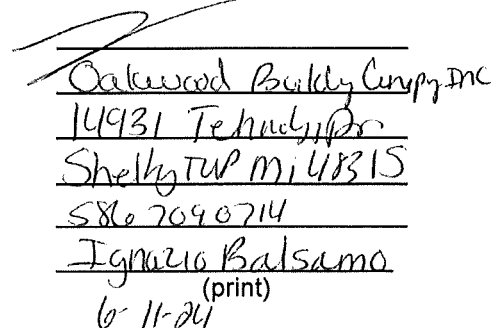 Oakwood Buildg Compy. INC
14931 Technolg Dr
Shelby TWP Mi 48315
586 7090714
Ignazio Balsamo
(print)
6-11-24